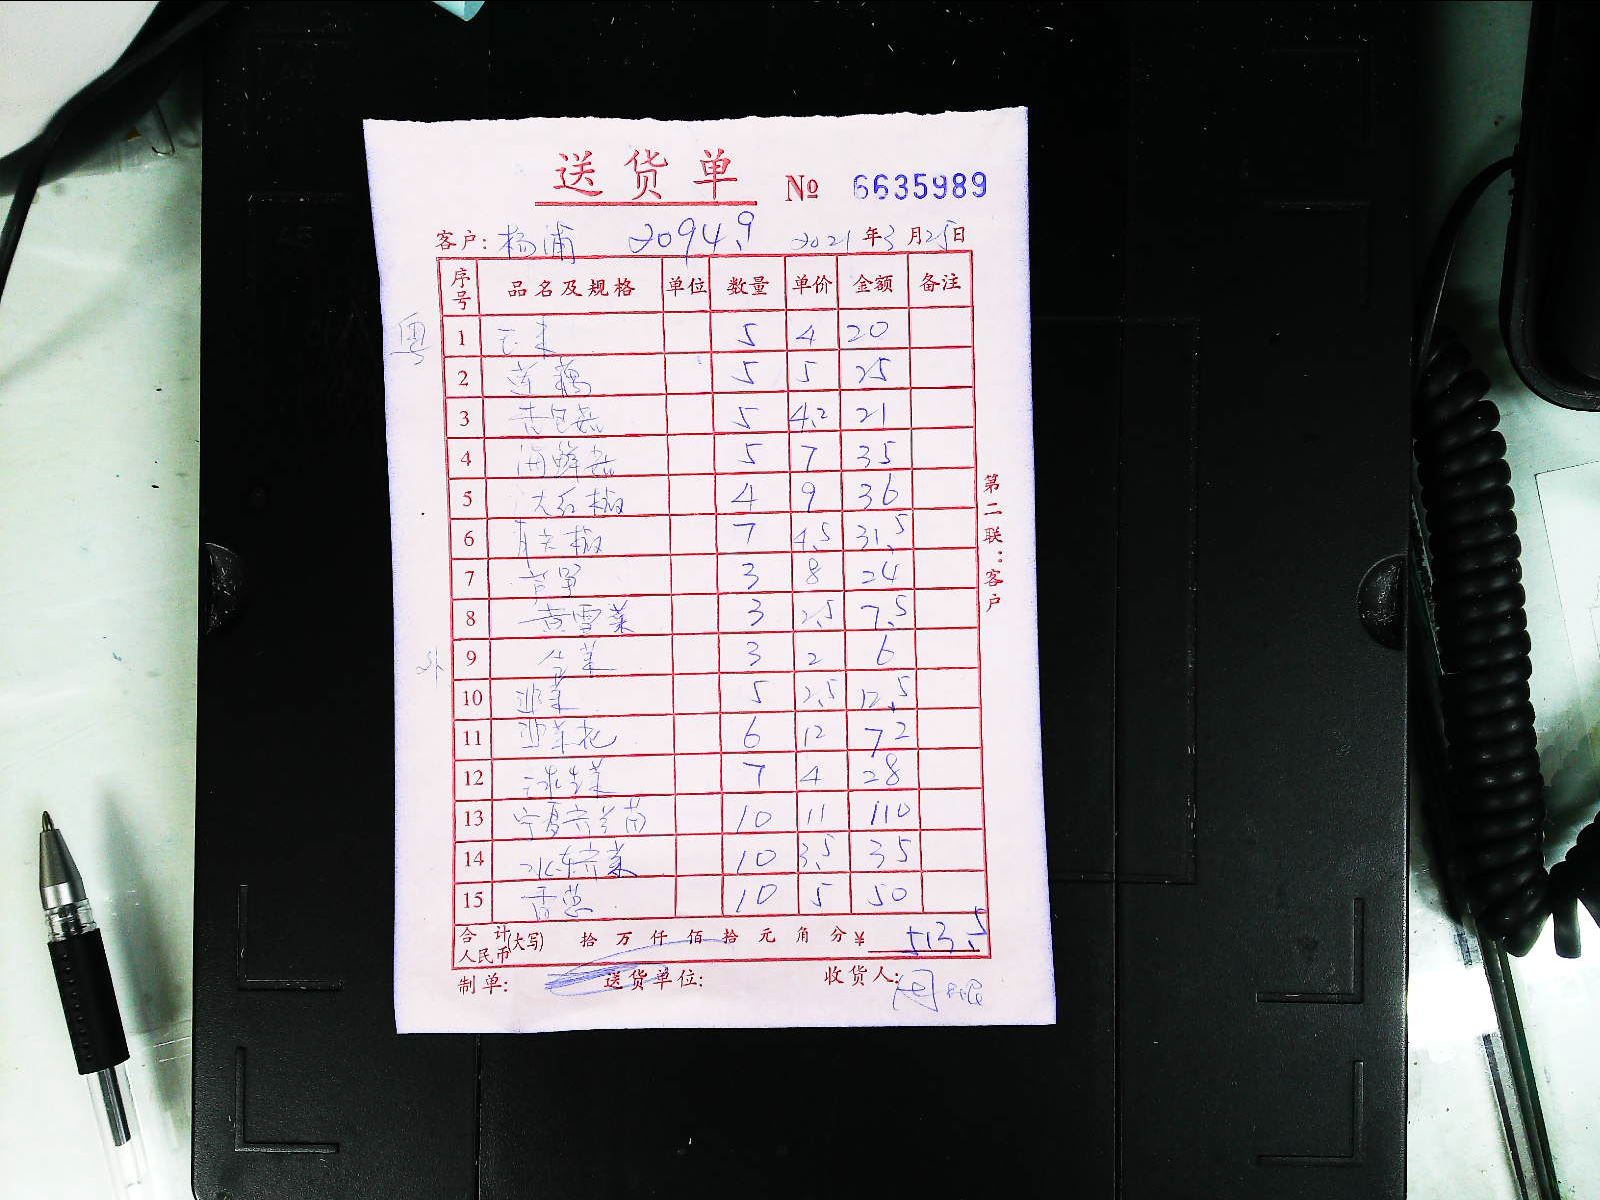 送货单 № 6635989
客户: 杨浦 2094.9 2021年3月25日
序号 品名及规格 单位 数量 单价 金额 备注
粤 1 玉米 5 4 20
2 莲藕 5 5 25
3 杏包菇 5 4.2 21
4 海鲜菇 5 7 35
5 大红椒 4 9 36
6 青尖椒 7 4.5 31.5
7 3 8 24
8 黄雪菜 3 2.5 7.5
外 9 生菜 3 2 6
10 韭菜 5 2.5 12.5
11 韭菜花 6 12 72
12 球生菜 7 4 28
13 宁夏芥兰苗 10 11 110
14 水东芥菜 10 3.5 35
15 香葱 10 5 50
合计人民币(大写) 拾 万 仟 佰 拾 元 角 分 ¥ 513.5
制单: 送货单位: 收货人: 周
第二联:客户